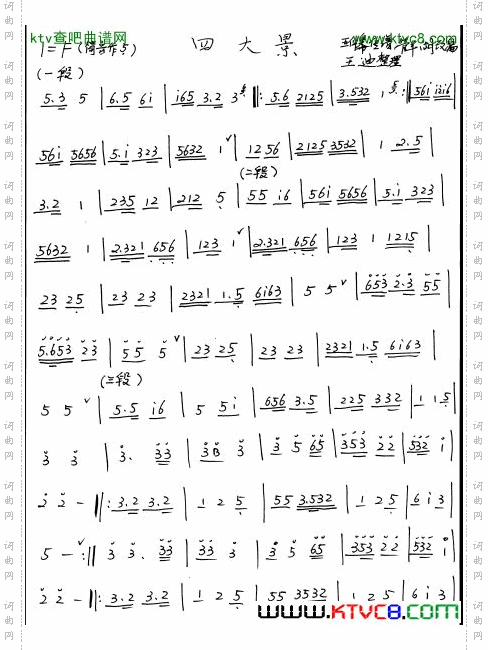 ktv查吧曲谱网
www.ktvc8.com
四大景
1=F
王迪整理
(一段)
5.3 5 | 6.5 6i | i65 3.2 3 ‖: 5.6 2125 | 3.532 1 :‖ 56i i2i6 |
56i 5656 | 5.i 323 | 5632 1 ˅ | 1256 | 2125 3532 | 1 2.5 |
(二段)
3.2 1 | 235 12 | 212 5 | 55 i6 | 56i 5656 | 5.i 323 |
5632 1 | 2.321 656 | 123 1 ˅ | 2.321 656 | 123 1 1215 |
23 25 | 23 23 | 2321 1.5 6i63 | 5 5 ˅ | 653 2.3 55 |
5.653 23 | 55 5 ˅ | 23 25 | 23 23 | 2321 1.5 6i63 |
(三段)
5 5 ˅ | 5.5 i6 | 5 5i | 656 3.5 | 225 332 | 1 1.5 |
3 3 | 3. 33 | 33 3 | 3 5 65 | 353 22 | 532 i |
2 2 - ‖: 3.2 3.2 | 1 2 5 | 55 3.532 | 1 2 5 | 6 i 3 |
5 - ˅ :‖ 3 3. 33 | 33 3 | 3 5 65 | 353 22 | 532 i |
2 2 - ‖: 3.2 3.2 | 1 2 5 | 55 3532 | 1 2 5 | 6 i 3 |
www.KTVC8.com
词曲网